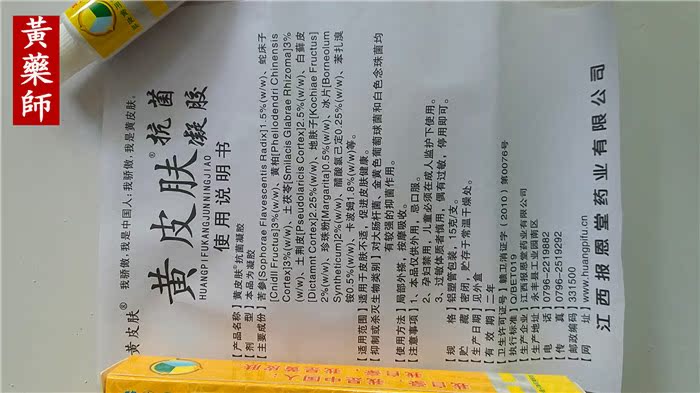 黄药師
黄皮肤® 我骄傲,我是中国人;我骄傲,我是黄皮肤。
黄皮肤®抗菌凝胶
HUANGPIFUKANGJUNNINGJIAO
使用说明书
【产品名称】黄皮肤®抗菌凝胶
【剂 型】本品为凝胶
【主要成份】苦参[Sophorae Flavescentis Radix]1.5%(w/w)、蛇床子
[Cnidii Fructus]3%(w/w)、黄柏[Phellodendri Chinensis
Cortex]3%(w/w)、土茯苓[Smilacis Glabrae Rhizoma]3%
(w/w)、土荆皮[Pseudolaricis Cortex]2.5%(w/w)、白藓皮
[Dictamnt Cortex]2.25%(w/w)、地肤子[Kochiae Fructus]
2%(w/w)、珍珠粉[Margarita]0.5%(w/w)、冰片[Borneolum
Syntheticum]2%(w/w)、醋酸氯己定0.25%(w/w)、苯扎溴
铵0.5%(w/w)、卡波姆1.8%(w/w)等。
【适用范围】适用于皮肤不适,促进皮肤健康。
【抑制或杀灭生物类别】对大肠杆菌、金黄色葡萄球菌和白色念珠菌均
有较强的抑菌作用。
【使用方法】局部外搽,按摩吸收。
【注意事项】1、本品仅供外用,忌口服。
2、孕妇禁用,儿童必须在成人监护下使用。
3、过敏体质者慎用,偶有过敏,停用即可。
【规 格】铝塑管包装,15克/支。
【贮 藏】密闭,贮存于常温干燥处。
【生产日期】见外盒
【有 效 期】二年
【卫生许可证号】赣卫消证字(2010)第0076号
【执行标准】Q/BET019
【生产企业】江西报恩堂药业有限公司
【生产地址】永丰县工业园南区
【电 话】0796-2219882
【传 真】0796-2519292
【邮政编码】331500
【网 址】www.huangpifu.cn
江西报恩堂药业有限公司